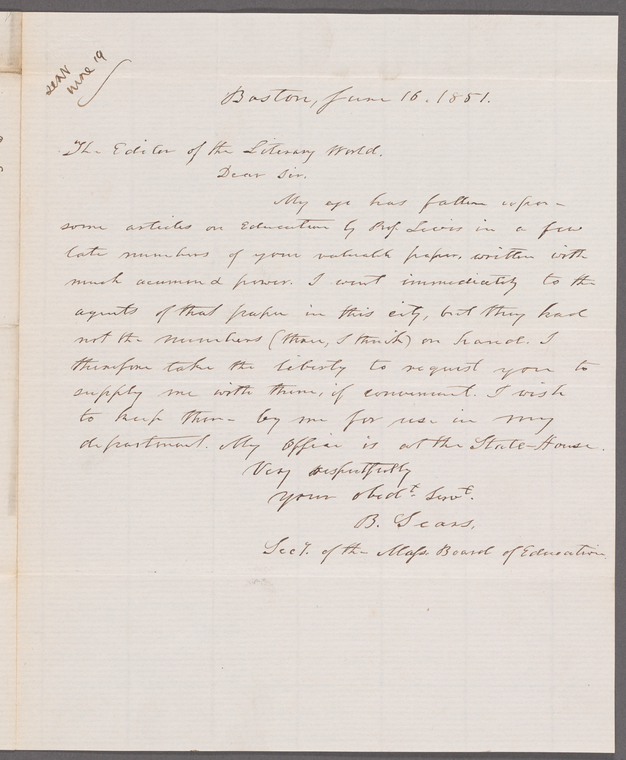 sent
June 19
Boston, June 16. 1851.
The Editor of the Literary World.
Dear Sir.
My eye has fallen upon
some articles on Education by Prof. Lewis in a few
late numbers of your valuable paper, written with
much acumen & power. I went immediately to the
agents of that paper in this city, but they had
not the numbers (three, I think) on hand. I
therefore take the liberty to request you to
supply me with them, if convenient. I wish
to keep them by me for use in my
department. My Office is at the State-House.
Very respectfully
your obedt. Servt.
B. Sears,
Secy. of the Mass. Board of Education.